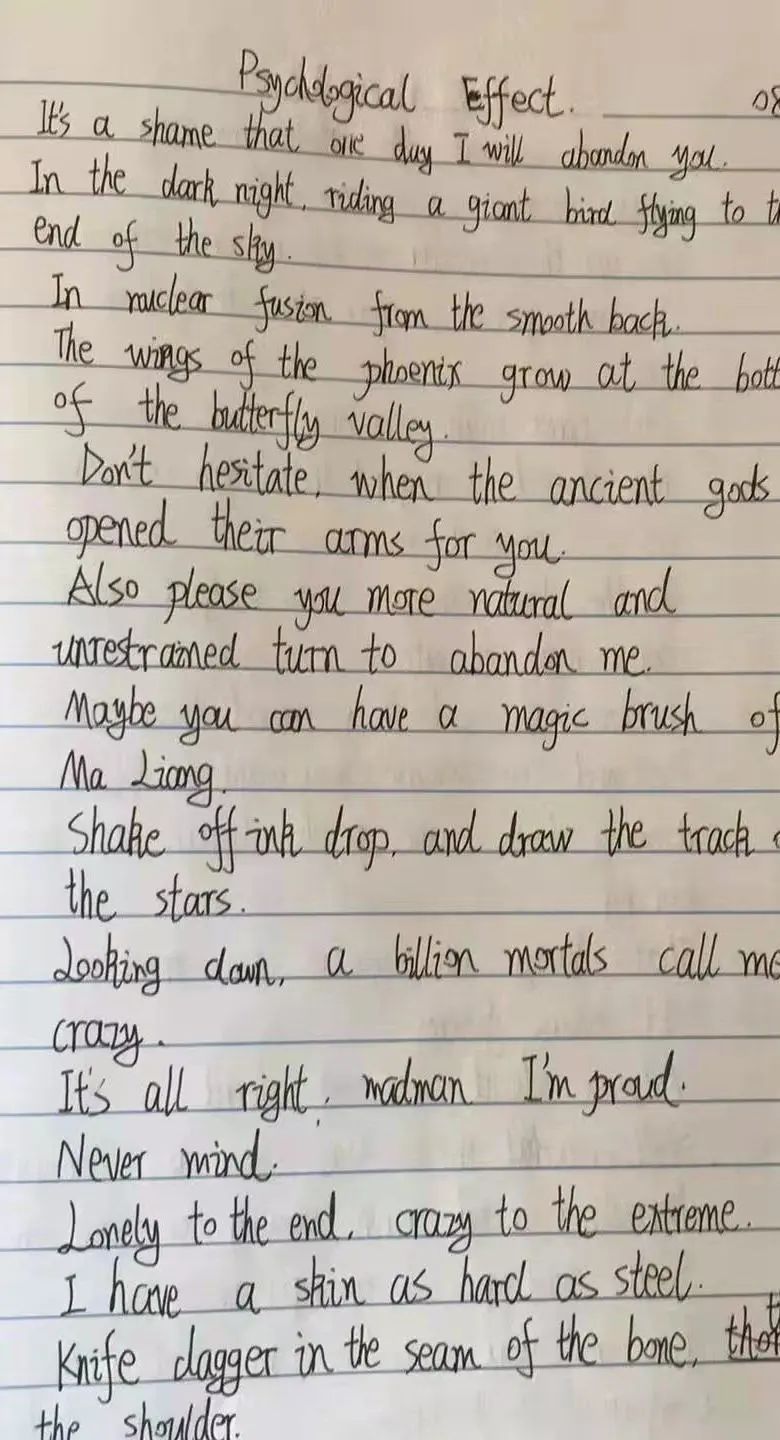 Psychological Effect. 08
It's a shame that one day I will abandon you.
In the dark night, riding a giant bird flying to
end of the sky.
In nuclear fusion from the smooth back.
The wings of the phoenix grow at the bott
of the butterfly valley.
Don't hesitate, when the ancient gods
opened their arms for you.
Also please you more natural and
unrestrained turn to abandon me.
Maybe you can have a magic brush of
Ma Liang.
Shake off ink drop, and draw the track
the stars.
Looking down, a billion mortals call me
crazy.
It's all right, madman I'm proud.
Never mind.
Lonely to the end, crazy to the extreme.
I have a skin as hard as steel.
Knife dagger in the seam of the bone,
the shoulder.